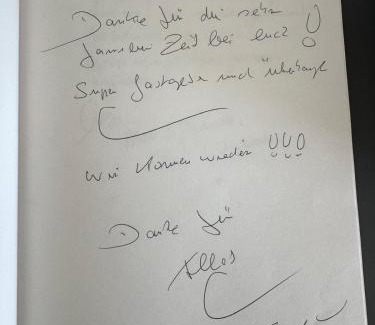 Danke für die sehr
Zeit bei euch!
Super Gastgeber und überhaupt
Wir kommen wieder !!!
Danke für
Alles